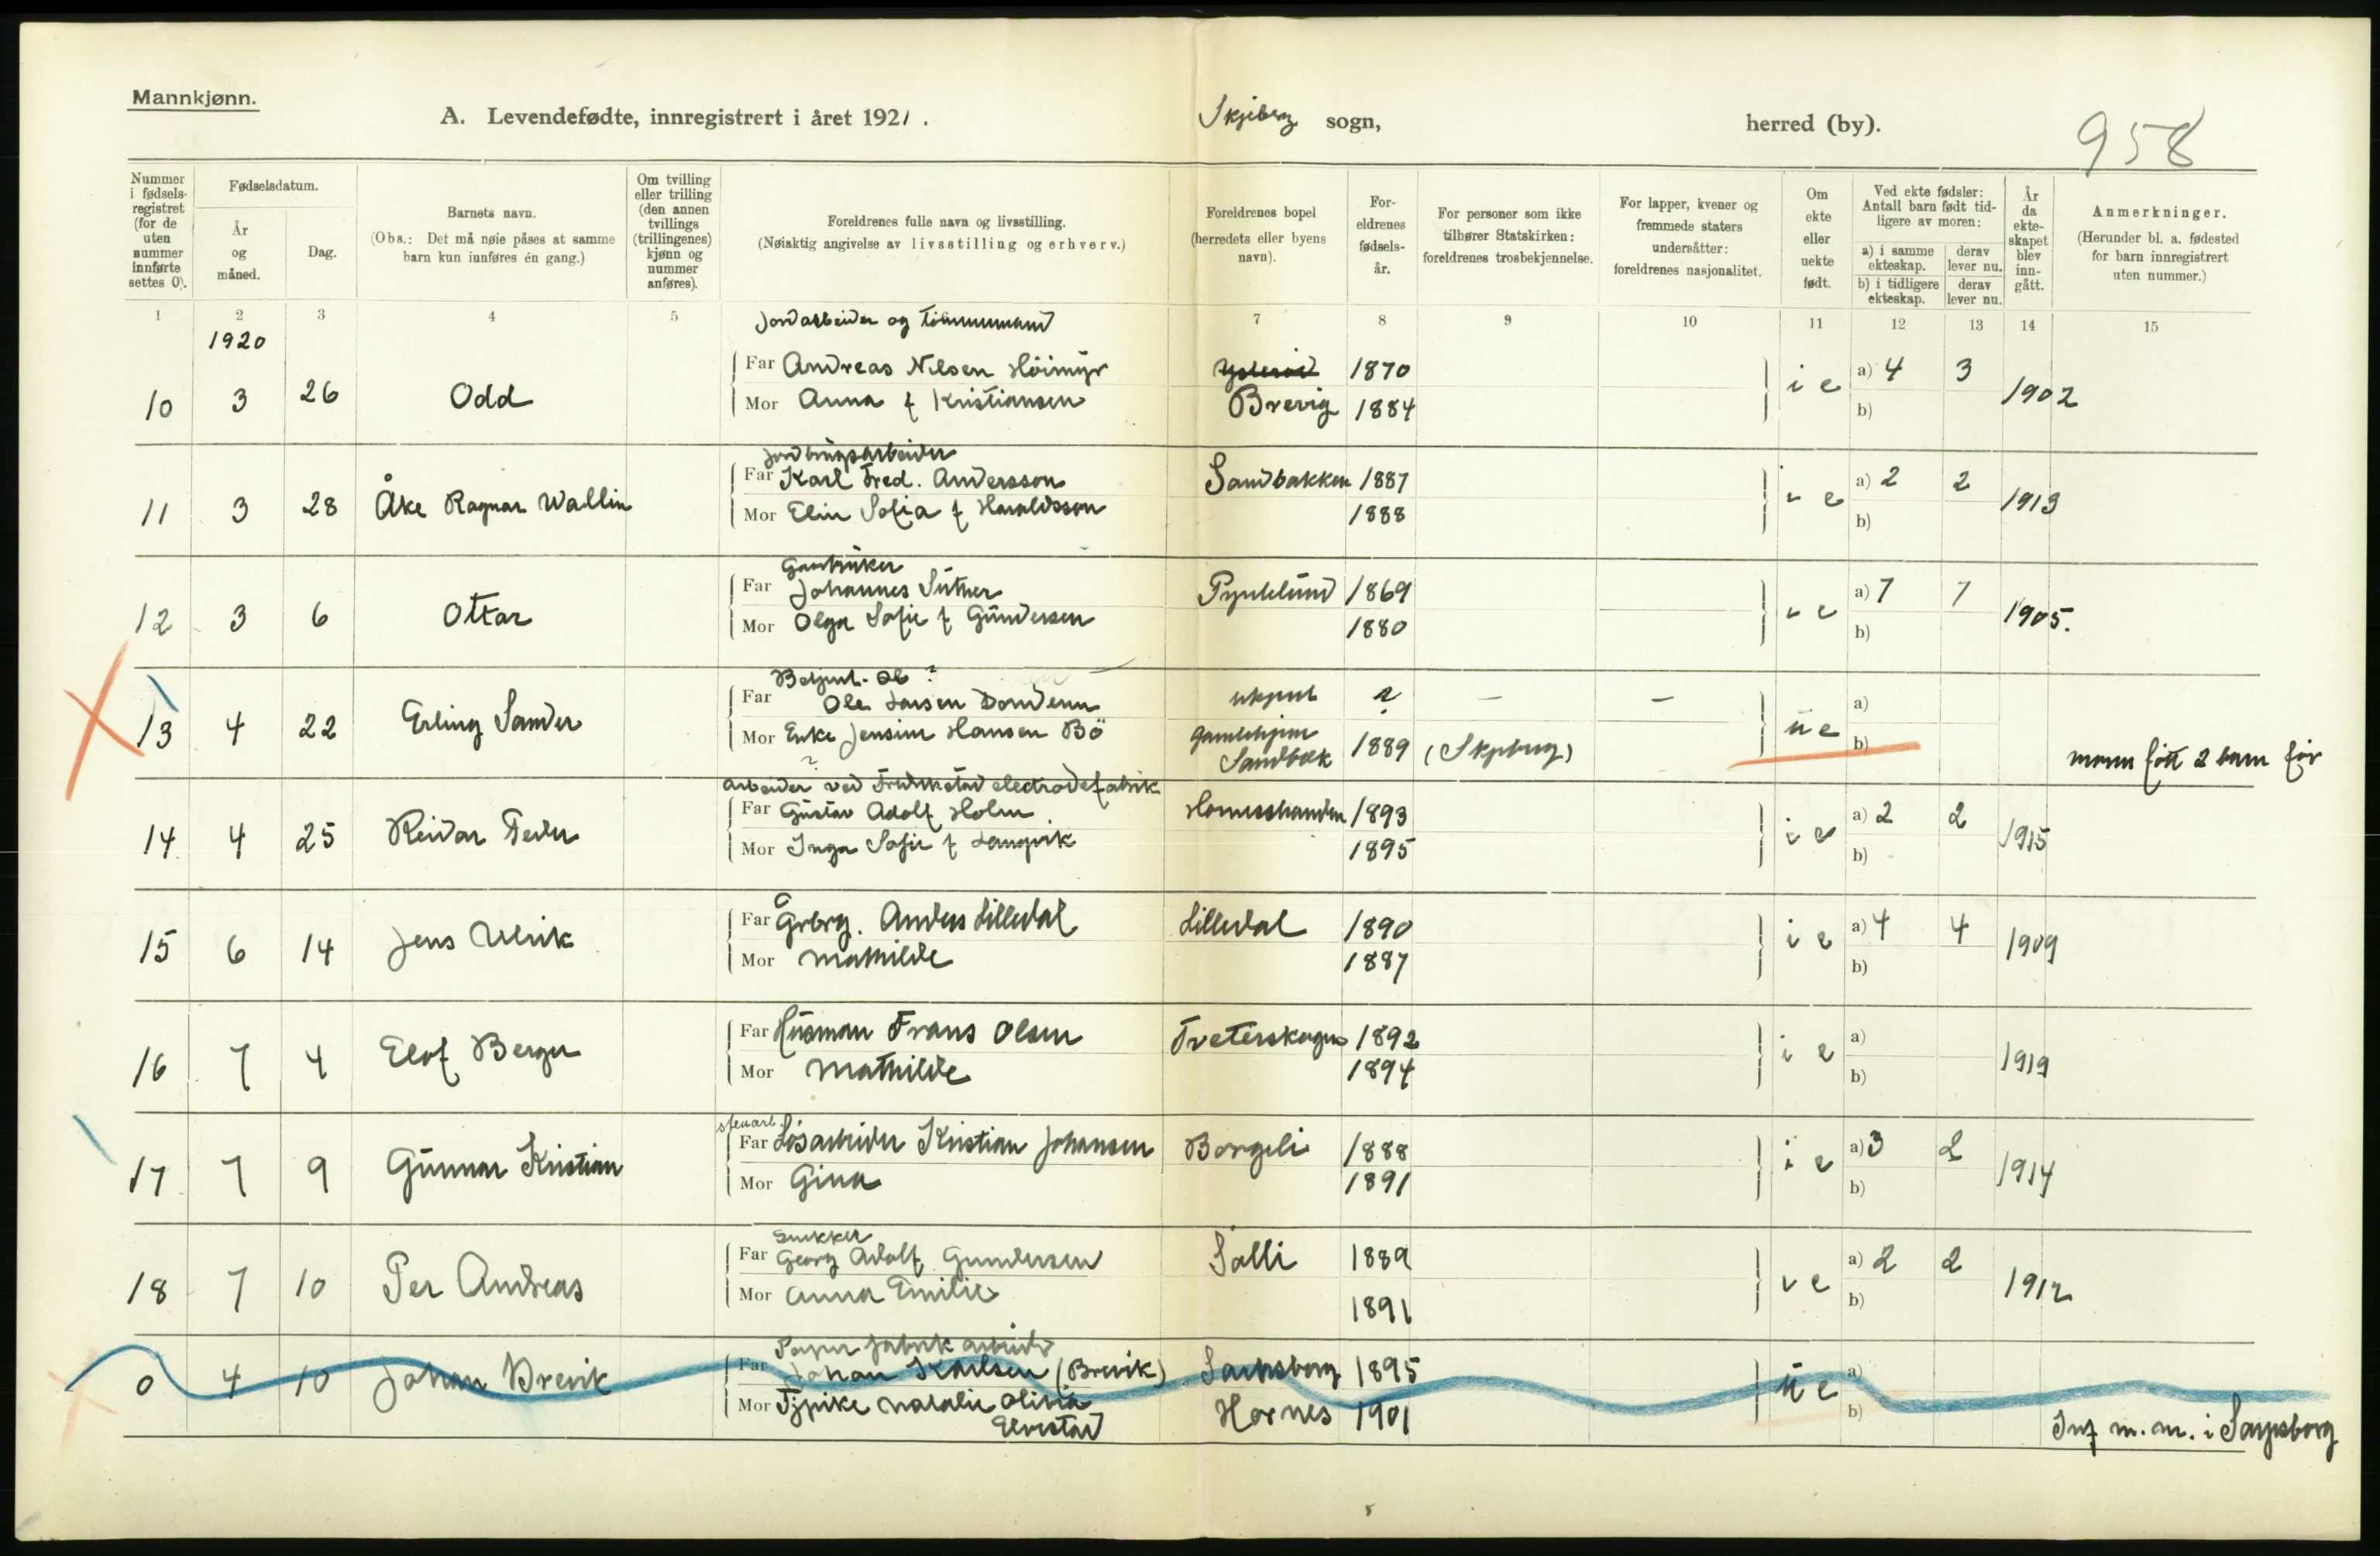 Mannkjønn.
A. Levendefødte, innregistrert i året 1921. Skjeberg sogn, herred (by).
958
Nummer i fødsels-registret (for de uten nummer innførte settes 0).
Fødselsdatum.
År og måned.
Dag.
Barnets navn.
(Obs.: Det må nøie påses at samme barn kun innføres én gang.)
Om tvilling eller trilling (den annen tvillings (trillingenes) kjønn og nummer anføres).
Foreldrenes fulle navn og livsstilling.
(Nøiaktig angivelse av livsstilling og erhverv.)
Foreldrenes bopel (herredets eller byens navn).
For-eldrenes fødsels-år.
For personer som ikke tilhører Statskirken: foreldrenes trosbekjennelse.
For lapper, kvener og fremmede staters undersåtter: foreldrenes nasjonalitet.
Om ekte eller uekte født.
Ved ekte fødsler: Antall barn født tid-ligere av moren:
a) i samme ekteskap. derav lever nu.
b) i tidligere ekteskap. derav lever nu.
År da ekte-skapet blev inn-gått.
Anmerkninger.
(Herunder bl. a. fødested for barn innregistrert uten nummer.)
1 2 3 4 5 7 8 9 10 11 12 13 14 15
1920
Jordarbeider og tömmermand
10 3 26 Odd Far Andreas Nilsen Höimyr 1870 i e a) 4 3 1902
Mor Anna f Kristiansen Brevig 1884 b)
11 3 28 Åke Ragnar Wallin Far Karl Fred. Andersson Sandbakken 1887 i e a) 2 2 1913
Mor Elin Sofia f Haraldsson 1888 b)
Gaardbruker
12 3 6 Ottar Far Johannes Suther 1869 i e a) 7 7 1905.
Mor Olga Sofie f Gundersen 1880 b)
13 4 22 Erling Sander Far Ole Larsen ukjent ? — — u e a)
Mor Enke Jensine Hansen Bö Sandbæk 1889 (Skjeberg) b) födt 2 barn för
arbeider ved Fredrikstad electrodefabrik
14 4 25 Reidar Peder Far Gustav Adolf Holm 1893 i e a) 2 2 1915
Mor Inga Sofie f Langvik 1895 b)
15 6 14 Jens Ulrik Far Grbrg. Anders Lilledal Lilledal 1890 i e a) 4 4 1909
Mor Mathilde 1887 b)
16 7 4 Elof Berger Far Husman Frans Olsen Tveterskogen 1892 i e a) 1919
Mor Mathilde 1894 b)
stenarb.
17 7 9 Gunnar Kristian Far Lösarbeider Kristian Johansen Borgeli 1888 i e a) 3 2 1914
Mor Gina 1891 b)
Snekker
18 7 10 Per Andreas Far Georg Adolf Gundersen Solli 1889 i e a) 2 2 1912
Mor Anna Emilie 1891 b)
Papirfabrik arbeider
0 4 10 Johan Brevik Far Johan Karlsen (Brevik) Sarpsborg 1895 u e a)
Mor Tjpike Natalie Olivia Hornes 1901 b)
Elvestad Inf m. nr. i Sarpsborg